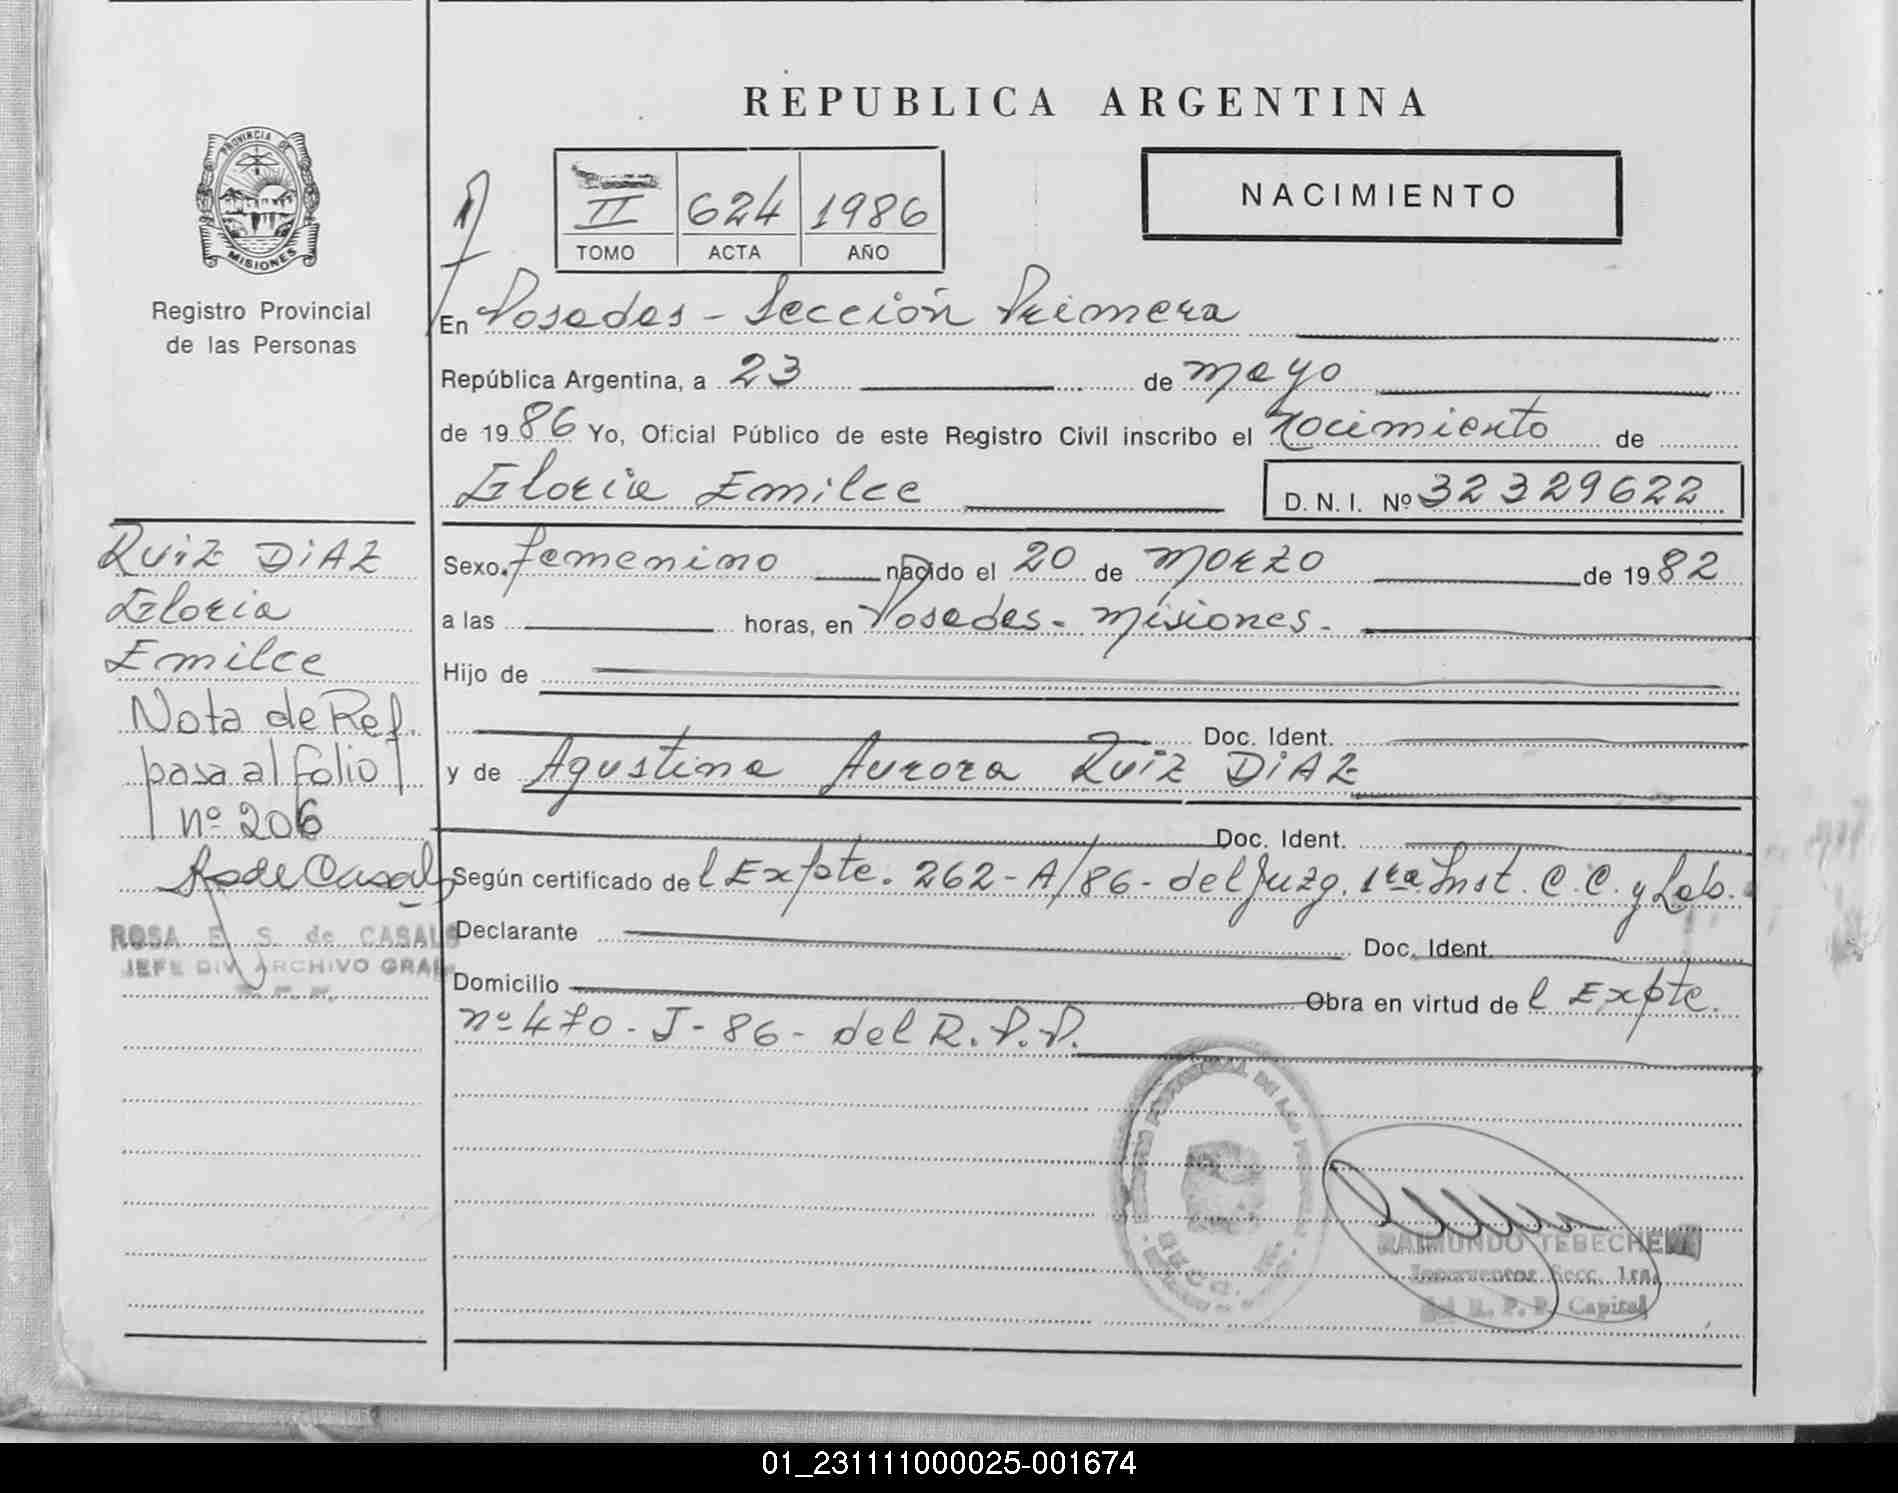 REPUBLICA ARGENTINA
PROVINCIA DE
MISIONES
Registro Provincial
de las Personas
II 624 1986
TOMO ACTA AÑO
NACIMIENTO
En Posadas - Sección Primera
República Argentina, a 23 de mayo
de 1986 Yo, Oficial Público de este Registro Civil inscribo el nacimiento de
Gloria Emilce D. N. I. Nº 32329622
RUIZ DIAZ
Gloria
Emilce
Nota de Ref.
pasa al folio
nº 206
ROSA E. S. de CASALS
JEFE DIV. ARCHIVO GRAL.
Sexo femenino nacido el 20 de marzo de 1982
a las horas, en Posadas - Misiones.
Hijo de
Doc. Ident.
y de Agustina Aurora RUIZ DIAZ
Doc. Ident.
Según certificado del Expte. 262-A/86- del Juzg. 1ra. Inst. C. C. y Lab.
Declarante Doc. Ident.
Domicilio Obra en virtud del Expte.
nº 470-J-86- del R.P.P.
RAIMUNDO TEBECHE
Interventor Secc. 1ra.
del R. P. P. Capital
01_231111000025-001674